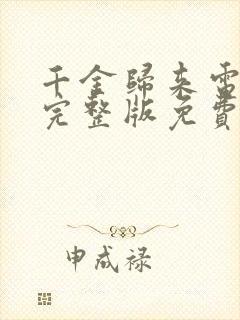 千金歸來電
完整版免費
申成禄